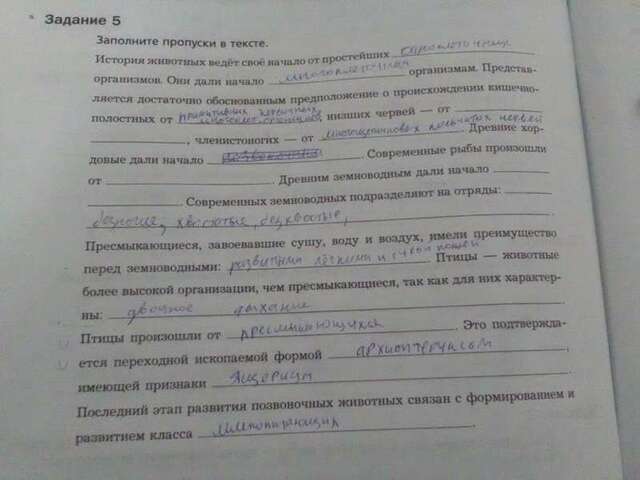 Задание 5
Заполните пропуски в тексте.
История животных ведёт своё начало от простейших одноклеточных
организмов. Они дали начало многоклеточным организмам. Представ-
ляется достаточно обоснованным предположение о происхождении кишечно-
полостных от примитивных первичных многоклеточных низших червей — от
, членистоногих — от многощетинковых кольчатых червей Древние хор-
довые дали начало позвоночным. Современные рыбы произошли
от . Древним земноводным дали начало
. Современных земноводных подразделяют на отряды:
безногие, хвостатые, безхвостые,
Пресмыкающиеся, завоевавшие сушу, воду и воздух, имели преимущество
перед земноводными: развитыми лёгкими и сухой кожей Птицы — животные
более высокой организации, чем пресмыкающиеся, так как для них характер-
ны: двойное дыхание
Птицы произошли от пресмыкающихся. Это подтвержда-
ется переходной ископаемой формой археоптериксом,
имеющей признаки ящериц.
Последний этап развития позвоночных животных связан с формированием и
развитием класса млекопитающих